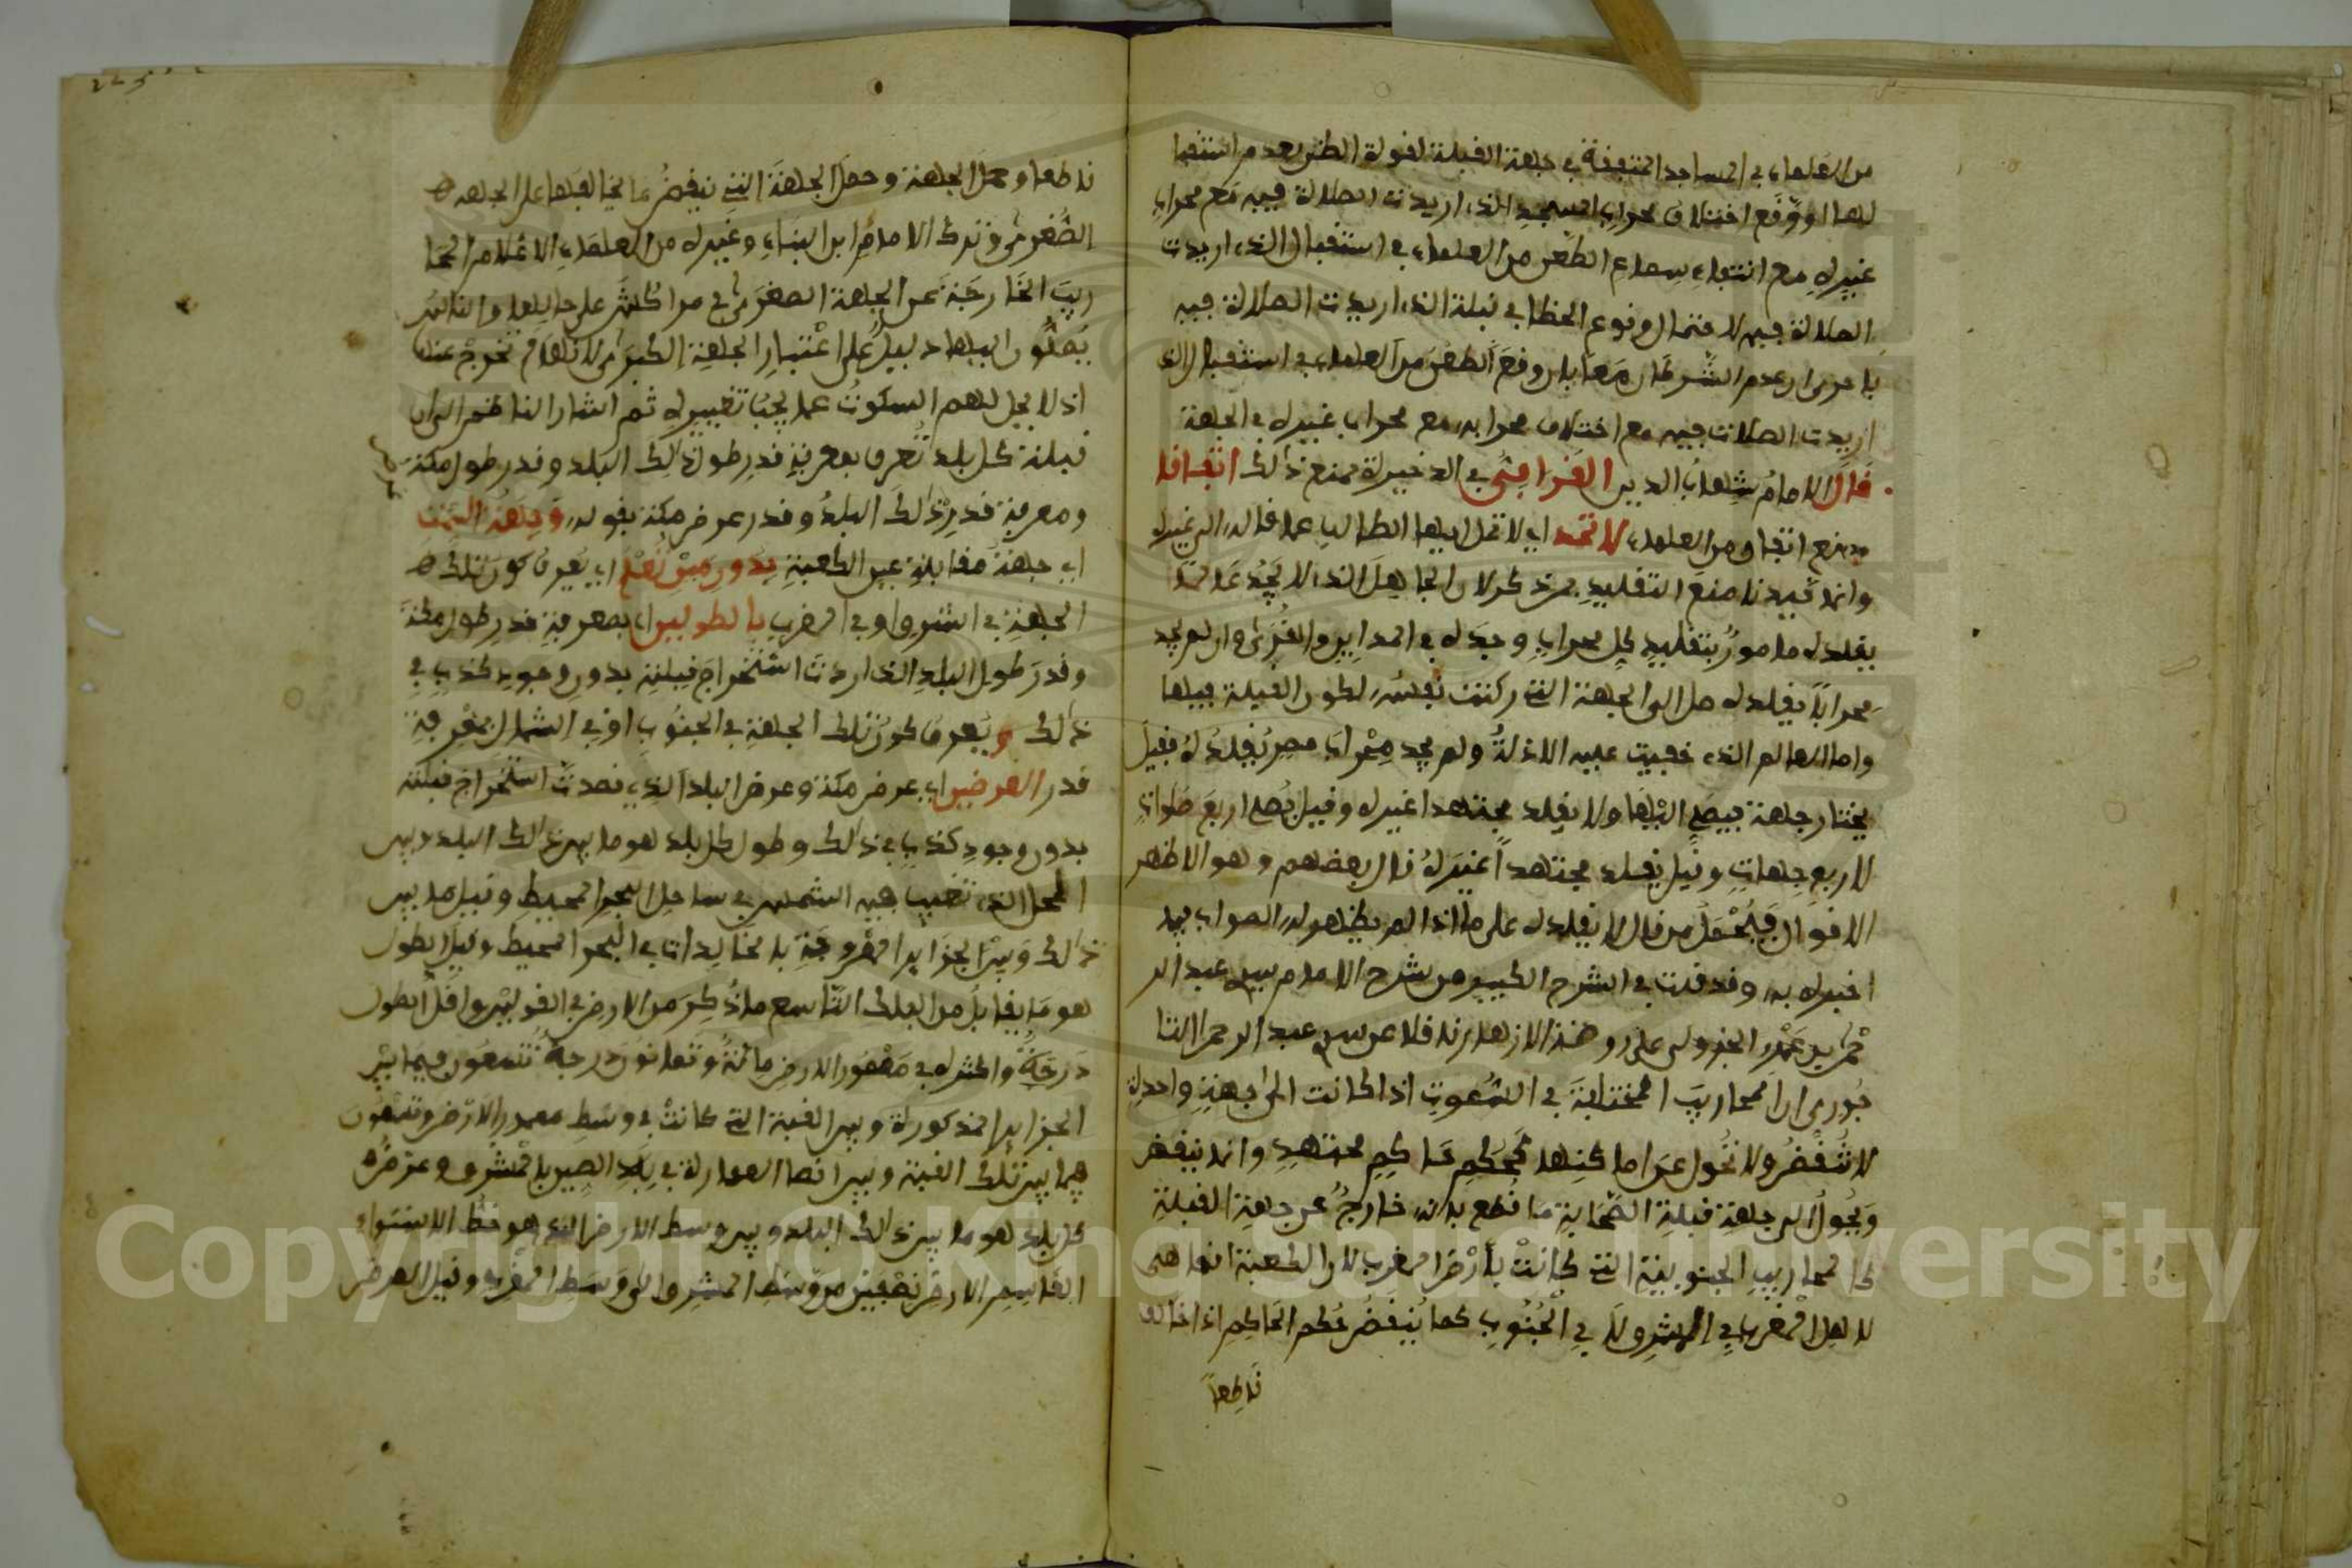 من العلماء في المساجد المتفقة في جهة القبلة لقوة الظن بعدم استقبا
لها او وقع اختلاف محراب المسجد الذي اريدت الصلاة فيه مع محراب
غيره مع انتفاء سماع الطعن من العلماء في استقبال الذي اريدت
الصلاة فيه لاحتمال وقوع الخطا في قبلة الذي اريدت الصلاة فيه
باحرى ان عدم الشرطان معا بان وقع الطعن من العلماء في استقبال الذي
اريدت الصلات فيه مع اختلاف محرابه مع محراب غيره في الجهة
قال الامام شهاب الدين القرافي في الذخيرة يمنع ذلك اتفاقا
يمنع اتفاق من العلماء لا تحد اي لا تمل ايها الطالب عما قاله الى غيره
وانما قيدنا منع التقليد بمن ذكر لان الجاهل الذي لا يجد عالما
يقلده مامور بتقليد كل محراب وجده في المداين والقرى وان لم يجد
محرابا يقلده صلى الى الجهة التي ركنت نفسه لكون القبلة فيها
واما العالم الذي خفيت عليه الادلة ولم يجد محراب مصر يقلده فقيل
يختار جهة فيصلي اليها ولا يقلد مجتهدا غيره وقيل يصلي اربع صلوات
لاربع جهات وقيل يقلد مجتهدا غيره قال بعضهم وهو الاظهر
الاقوال فيحمل من قال لا يقلده على ما اذا لم يظهر له الصواب فيما
اخبره به وقد قلت في الشرح الكبير من شرح الامام سيدي عبد الر
حمن بن عمر الجزولي على روضة الازهار نقلا عن سيدي عبد الرحمن التا
جوري ان المحاريب المختلفة في السموت اذا كانت الى جهة واحدة
لا تنقض ولا تحول عن اماكنها كحكم حاكم مجتهد وانما ينقض
ويحول الى جهة قبلة الصحابة ما قطع بانه خارج عن جهة القبلة
كالمحاريب الجنوبية التي كانت بارض المغرب لان الكعبة انما هي
لاهل المغرب في المشرق لا في الجنوب كما ينقض حكم الحاكم اذا خالف
قاطعا
قاطعا وحمل الجهة وحمل الجهة التي ينقض ما خالفها على الجهة
الصغرى وترك الامام ابن البناء وغيره من العلماء الاعلام المحا
ريب الخارجة عن الجهة الصغرى في مراكش على حالها والناس
يصلون اليها دليل على اعتبار الجهة الكبرى لانها لم تخرج عنها
اذ لا يحل لهم السكوت عما يجب تغييره ثم اشار الناظم الى ان
قبلة كل بلد تعرف بمعرفة قدر طول ذلك البلد وقدر طول مكة
ومعرفة قدر ذلك البلد وقدر عرض مكة بقوله وجهة السمت
اي جهة مقابلة عين الكعبة بدون مين تعلم اي يعرف كون تلك
الجهة في الشرق او في المغرب بالطولين اي بمعرفة قدر طول مكة
وقدر طول البلد الذي اردت استخراج قبلته بدون وجود كذب في
ذلك ويعرف كون تلك الجهة في الجنوب او في الشمال بمعرفة
قدر العرضين اي عرض مكة وعرض البلد الذي قصدت استخراج قبلته
بدون وجود كذب في ذلك وطول كل بلد هو ما بين ذلك البلد وبين
المحل الذي تغيب فيه الشمس في ساحل البحر المحيط وقيل ما بين
ذلك وبين الجزاير المعروفة بالخالدات في البحر المحيط وقيل الطول
هو ما يقابل من الفلك التاسع ما ذكر من الارض في القولين واقل الطول
درجة واكثره في معمور الارض مائة وثمانون درجة تسعون فيما بين
الجزاير المذكورة وبين القبة التي كانت في وسط معمور الارض وتسعون
فيما بين تلك القبة وبين اقصا العمارة في بلاد الصين بالمشرق وعرض
كل بلد هو ما بين ذلك البلد وبين وسط الارض الذي هو خط الاستواء
القاسم الارض نصفين من وسط المشرق الى وسط المغرب وقيل العرض
Copyright © King Saud University